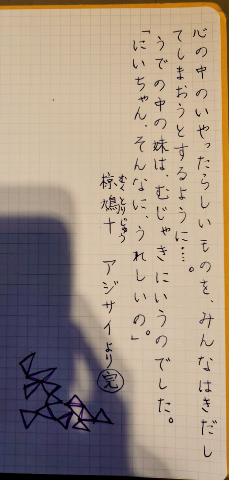 心の中のいやったらしいものを、みんなはきだし
てしまおうとするように…。
うでの中の妹は、むじゃきにいうのでした。
「にいちゃん、そんなに、うれしいの」。
むくとりじゅう
椋鳩十 アジサイより 完